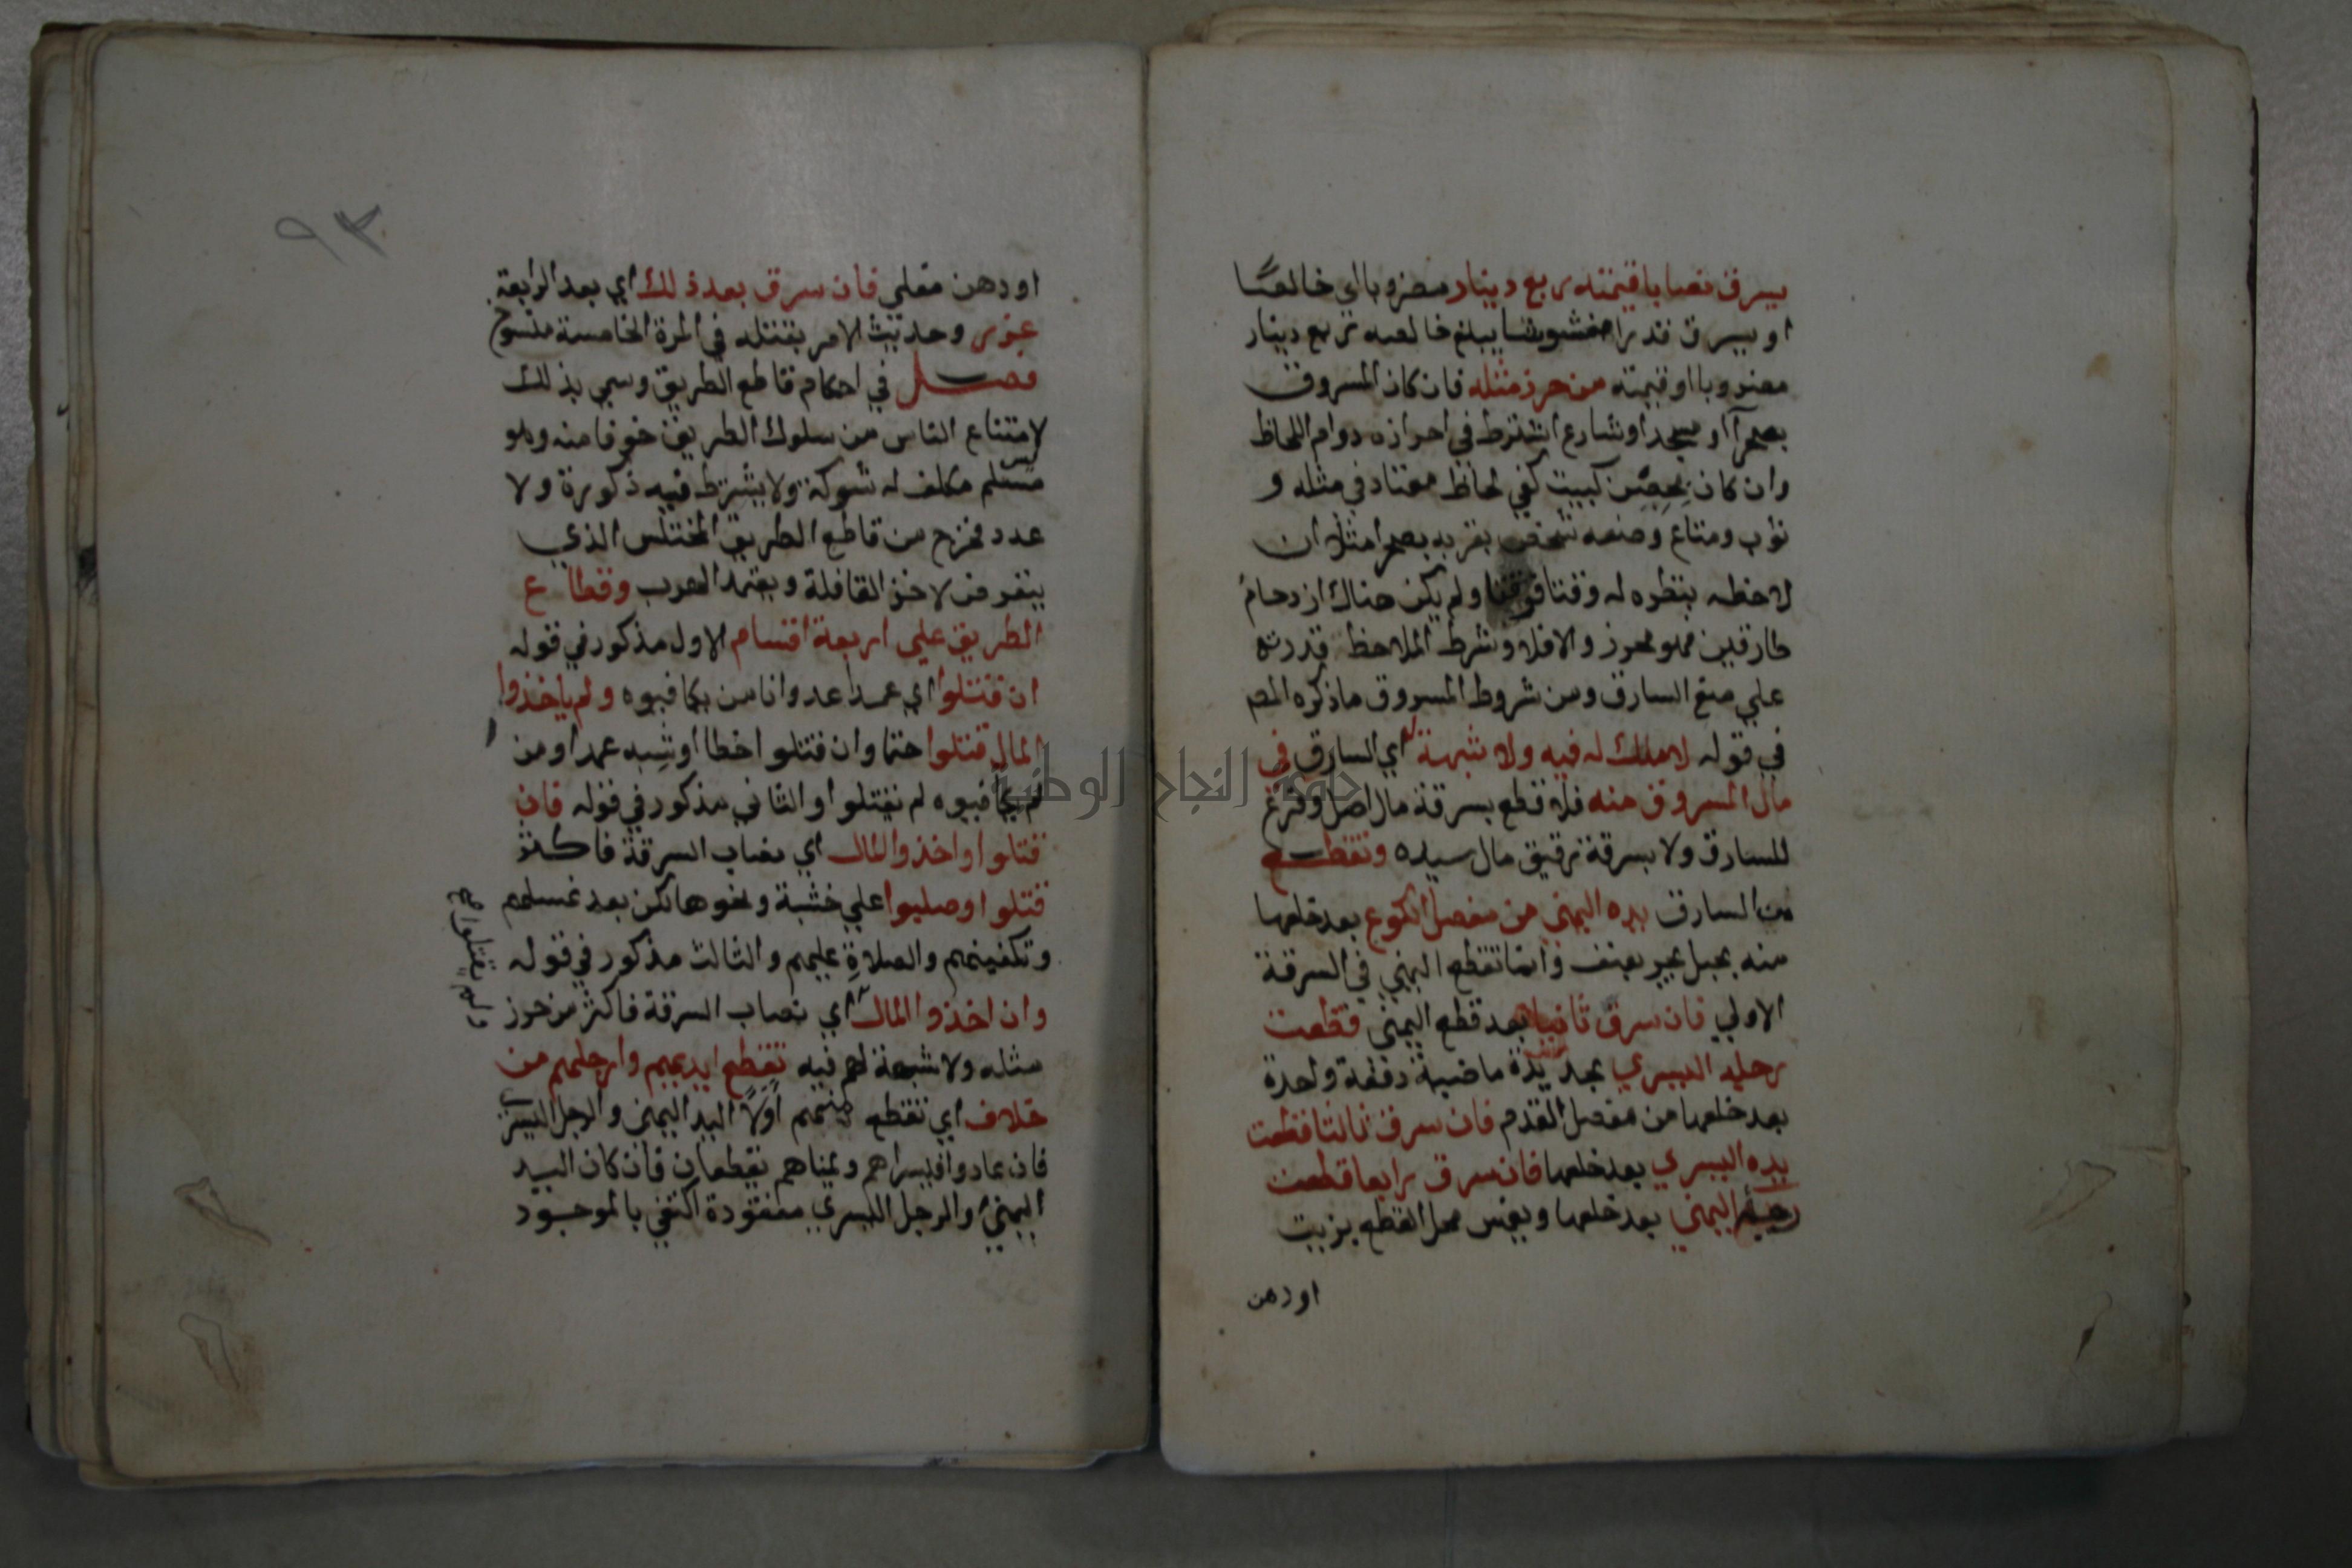 يسرق نصابا قيمته ربع دينار مضروبا اي خالصًا
او يسرق قدرا مغشوشا يبلغ خالصه ربع دينار
مضروبا او قيمته من حرز مثله فان كان المسروق
بصحرآ او مسجد او شارع اشترط في احرازه دوام اللحاظ
وان كان بحصن كبيت كفي لحاظ معتاد في مثله و
ثوب ومتاع وضعه شخص بقربه بصحرا مثلا ان
لاحظه بنظره له وقتا فوقتا ولم يكن هناك ازدحام
طارقين فهو محرز والافلا وشرط الملاحظ قدرته
علي منع السارق ومن شروط المسروق ماذكره المص
في قوله لاملك له فيه ولا شبهة اي السارق في
مال المسروق منه فلا قطع بسرقة مال اصل وفرع
للسارق ولا بسرقة رقيق مال سيده وتقطع
من السارق يده اليمني من مفصل الكوع بعد خلعها
منه بحبل يجر بعنف وانما تقطع اليمني في السرقة
الاولي فان سرق ثانيا بعد قطع اليمني قطعت
رجله اليسري بحديدة ماضية دفعة واحدة
بعد خلعها من مفصل القدم فان سرق ثالثا قطعت
يده اليسري بعد خلعها فان سرق رابعا قطعت
رجله اليمني بعد خلعها ويغمس محل القطع بزيت
او دهن
٩٣
او دهن مغلي فان سرق بعد ذلك اي بعد الرابعة
عزر وحديث الامر بقتله في المرة الخامسة منسوخ
فصل في احكام قاطع الطريق وسمي بذلك
لامتناع الناس من سلوك الطريق خوفا منه وهو
مسلم مكلف له شوكة ولا يشترط فيه ذكورة ولا
عدد فخرج من قاطع الطريق المختلس الذي
يتعرض لاخذ القافلة ويعتمد الهرب وقطاع
الطريق علي اربعة اقسام الاول مذكور في قوله
ان قتلوا اي عمدا عدوانا من يكافيوه ولم ياخذوا
المال قتلوا حتما وان قتلوا خطا او شبه عمد او من
لم يكافيوه لم يقتلوا والثاني مذكور في قوله فان
قتلوا واخذوا المال اي نصاب السرقة فاكثر
قتلوا وصلبوا علي خشبة ونحوها لكن بعد غسلهم
وتكفينهم والصلاة عليهم والثالث مذكور في قوله
وان اخذوا المال اي نصاب السرقة فاكثر من حرز
مثله ولا شبهة لهم فيه تقطع ايديهم وارجلهم من
خلاف اي تقطع منهم اولاً اليد اليمني والرجل اليسري
فان عادوا فيسراهم ويمناهم يقطعان فان كان اليد
اليمني او الرجل اليسري مفقودة اكتفي بالموجود
ولم يقتلوا صح
جامعة النجاح الوطنية